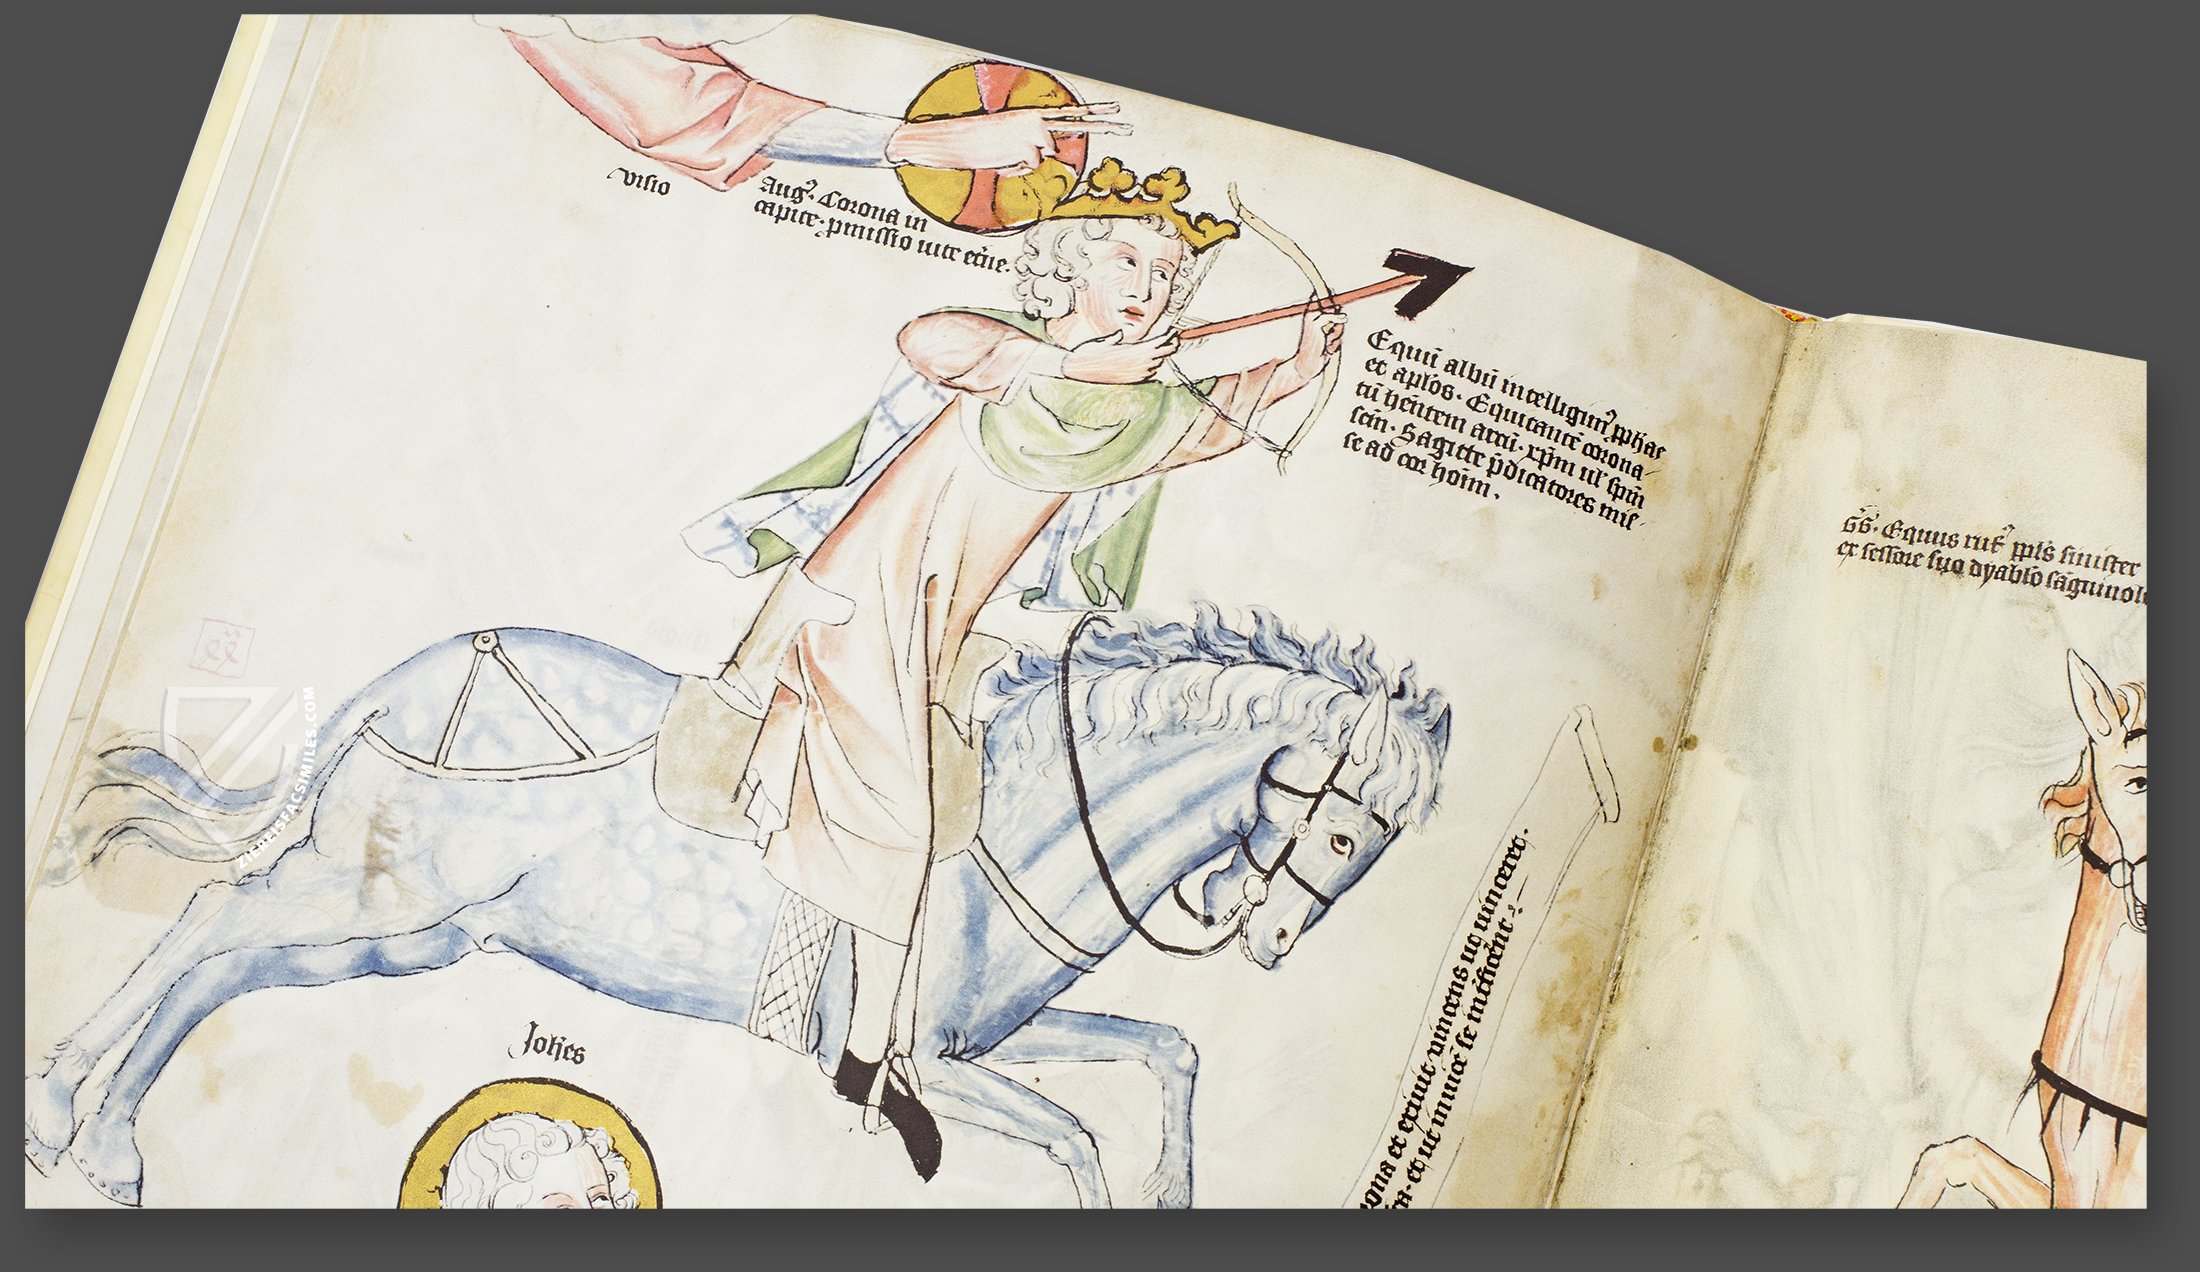 visio
Augꝰ. Corona in
capite. pmissio uite et̄ne.
Equū albū intelligimꝰ ꝓphās
et aplōs. Equitantē corona
tū hentem arcū. xp̄m ul' sp̄m
scm̄. Sagitte p̄dicatores mis
se ad cor hoim̄.
Joħes
ona et exiuit vincens ut uinceret.
GG. Equus rufꝰ ppls sinister
ex sessore suo dyabolo sāguinol
ZIEREISFACSIMILES.COM